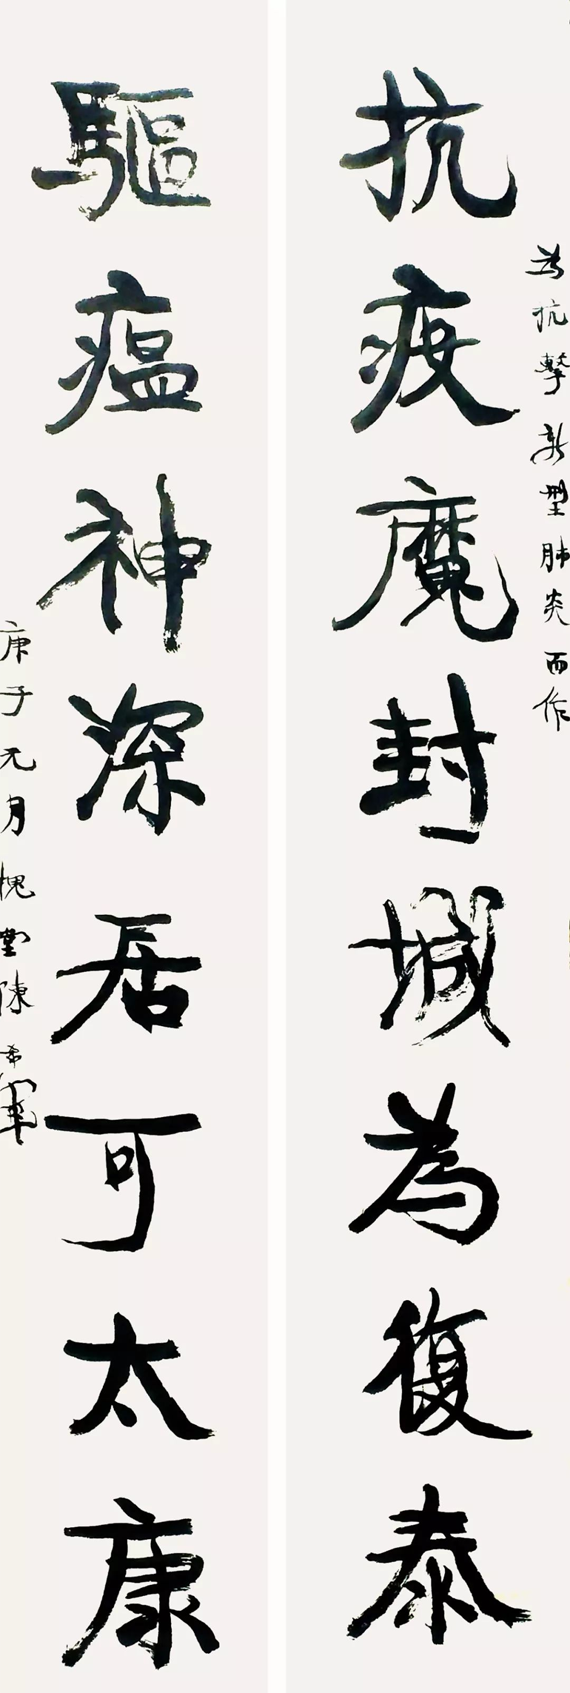 為抗擊新型肺炎而作
抗疫魔封城為復泰
驅瘟神深居可太康
庚子元月槐堂陳希軍